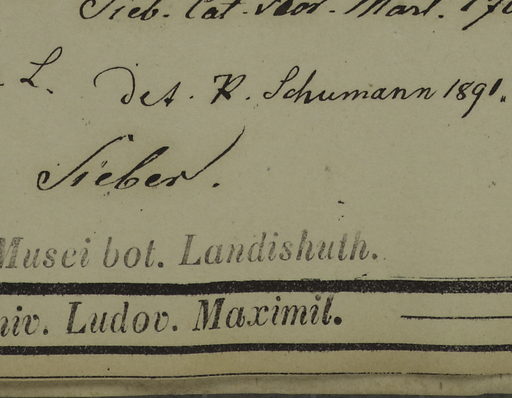 Sieb. Cat. Flor. Mart. 170
L. Det. K. Schumann 1891.
Sieber.
Musei bot. Landishuth.
niv. Ludov. Maximil.